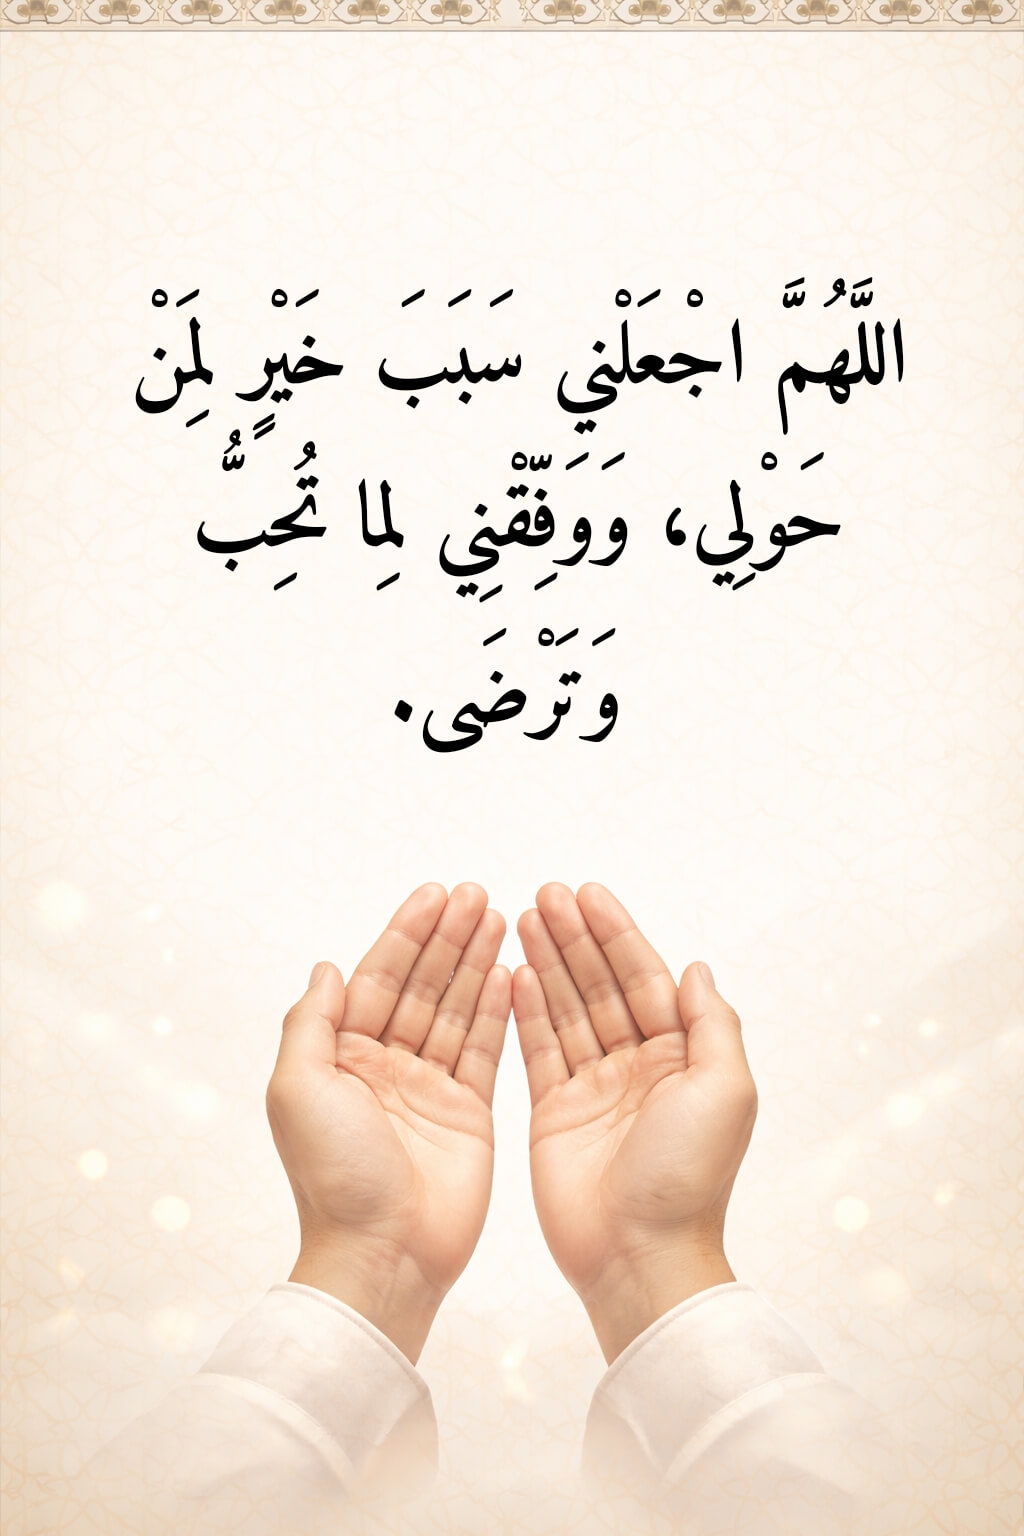 اللَّهُمَّ اجْعَلْني سَبَبَ خَيْرٍ لِمَنْ
حَوْلِي، وَوَفِّقْنِي لِما تُحِبُّ
وَتَرْضَى.